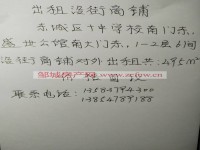 出租沿街商铺
东城区十中学校南门东,
盛世公馆南大门东,1-2层6间
沿街商铺对外出租共:495m²
邹城房产网 www.zcfcw.cn
联系电话:13583794300
13854789188